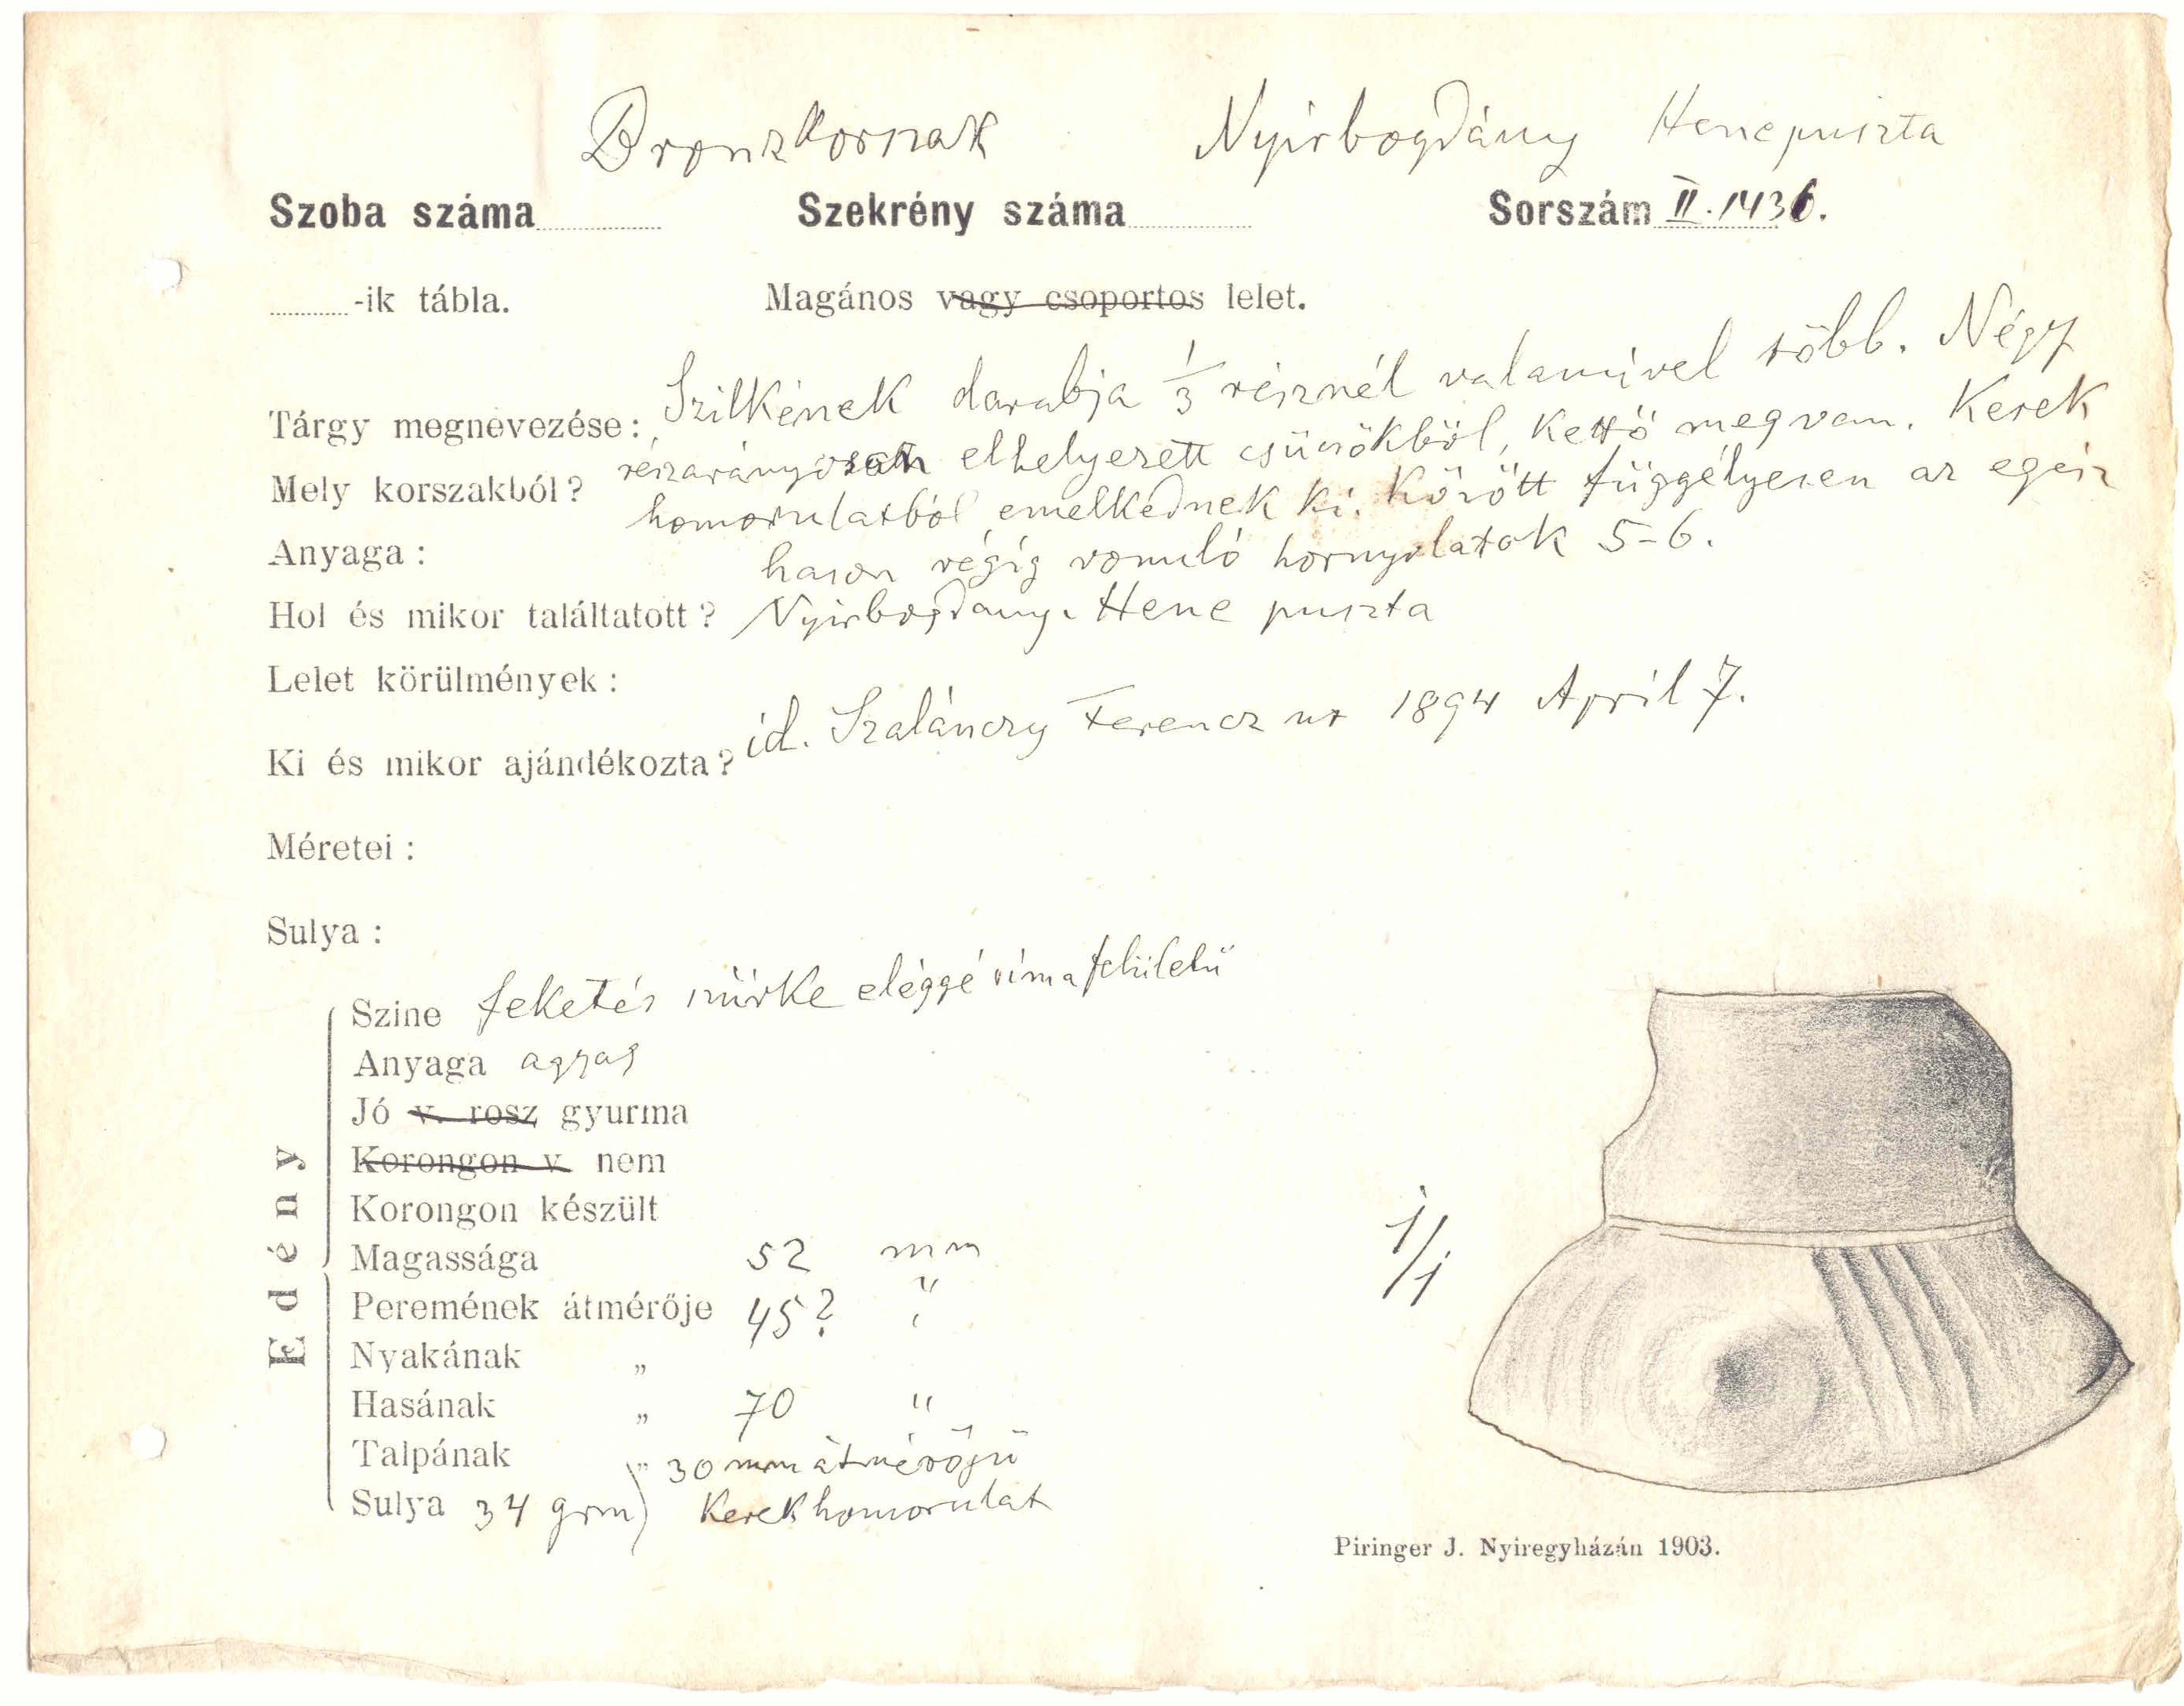 Bronzkornak Nyirbogdány Henepuszta
Szoba száma Szekrény száma Sorszám II. 1436.
-ik tábla. Magános vagy csoportos lelet.
Szilkének darabja 1/3 résznél valamivel több. Négy
Tárgy megnevezése: részarányosan elhelyezett csücsökből, kettő megvan. Kerek
Mely korszakból? homorulatból emelkednek ki. Között függélyesen az egész
Anyaga: hason végig vonuló hornyolatok 5-6.
Hol és mikor találtatott? Nyirbogdány. Hene puszta
Lelet körülmények:
Ki és mikor ajándékozta? id. Szalánczy Ferencz ur 1894 April 7.
Méretei:
Sulya:
Edény
Szine feketés szürke eléggé sima felületű
Anyaga agyag
Jó v. rosz gyurma
Korongon v. nem
Korongon készült
Magassága 52 mm
Peremének átmérője 45? "
Nyakának "
Hasának " 70 "
Talpának " 30 mm átmérőjü
Sulya 34 grm) Kerek homorulat
1/1
Piringer J. Nyiregyházán 1903.